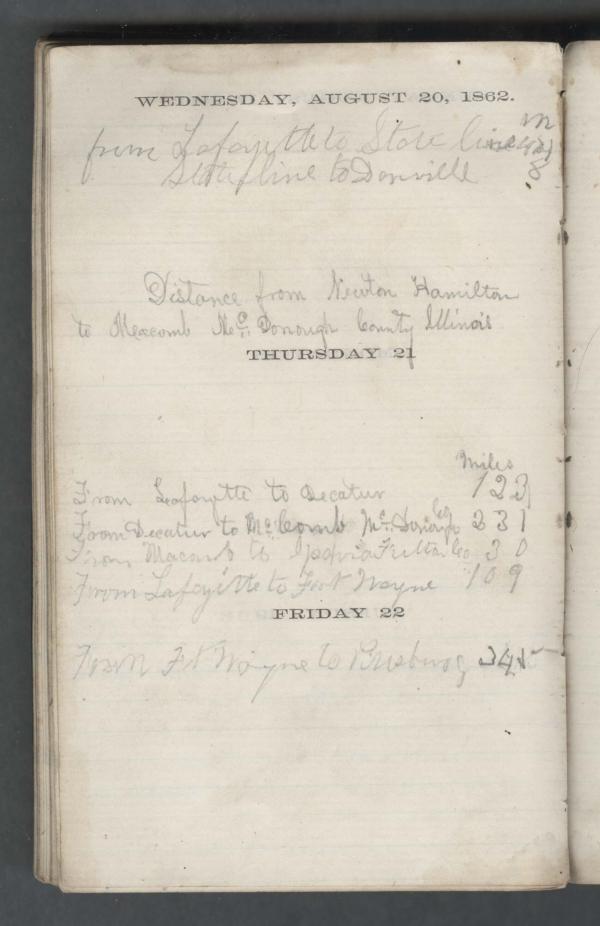 WEDNESDAY, AUGUST 20, 1862.
m
from Lafayette to State line
State line to Danville 8
Distance from Newton Hamilton
to Mexcomb Mc. Donough County Illinois
THURSDAY 21
Miles
From Lafayette to Decatur 123
From Decatur to Mc Comb Mc. Donough Co 231
From Macomb to Ipavia Fulton Co 30
From Lafayette to Fort Wayne 109
FRIDAY 22
From Ft Wayne to Pittsburg 345